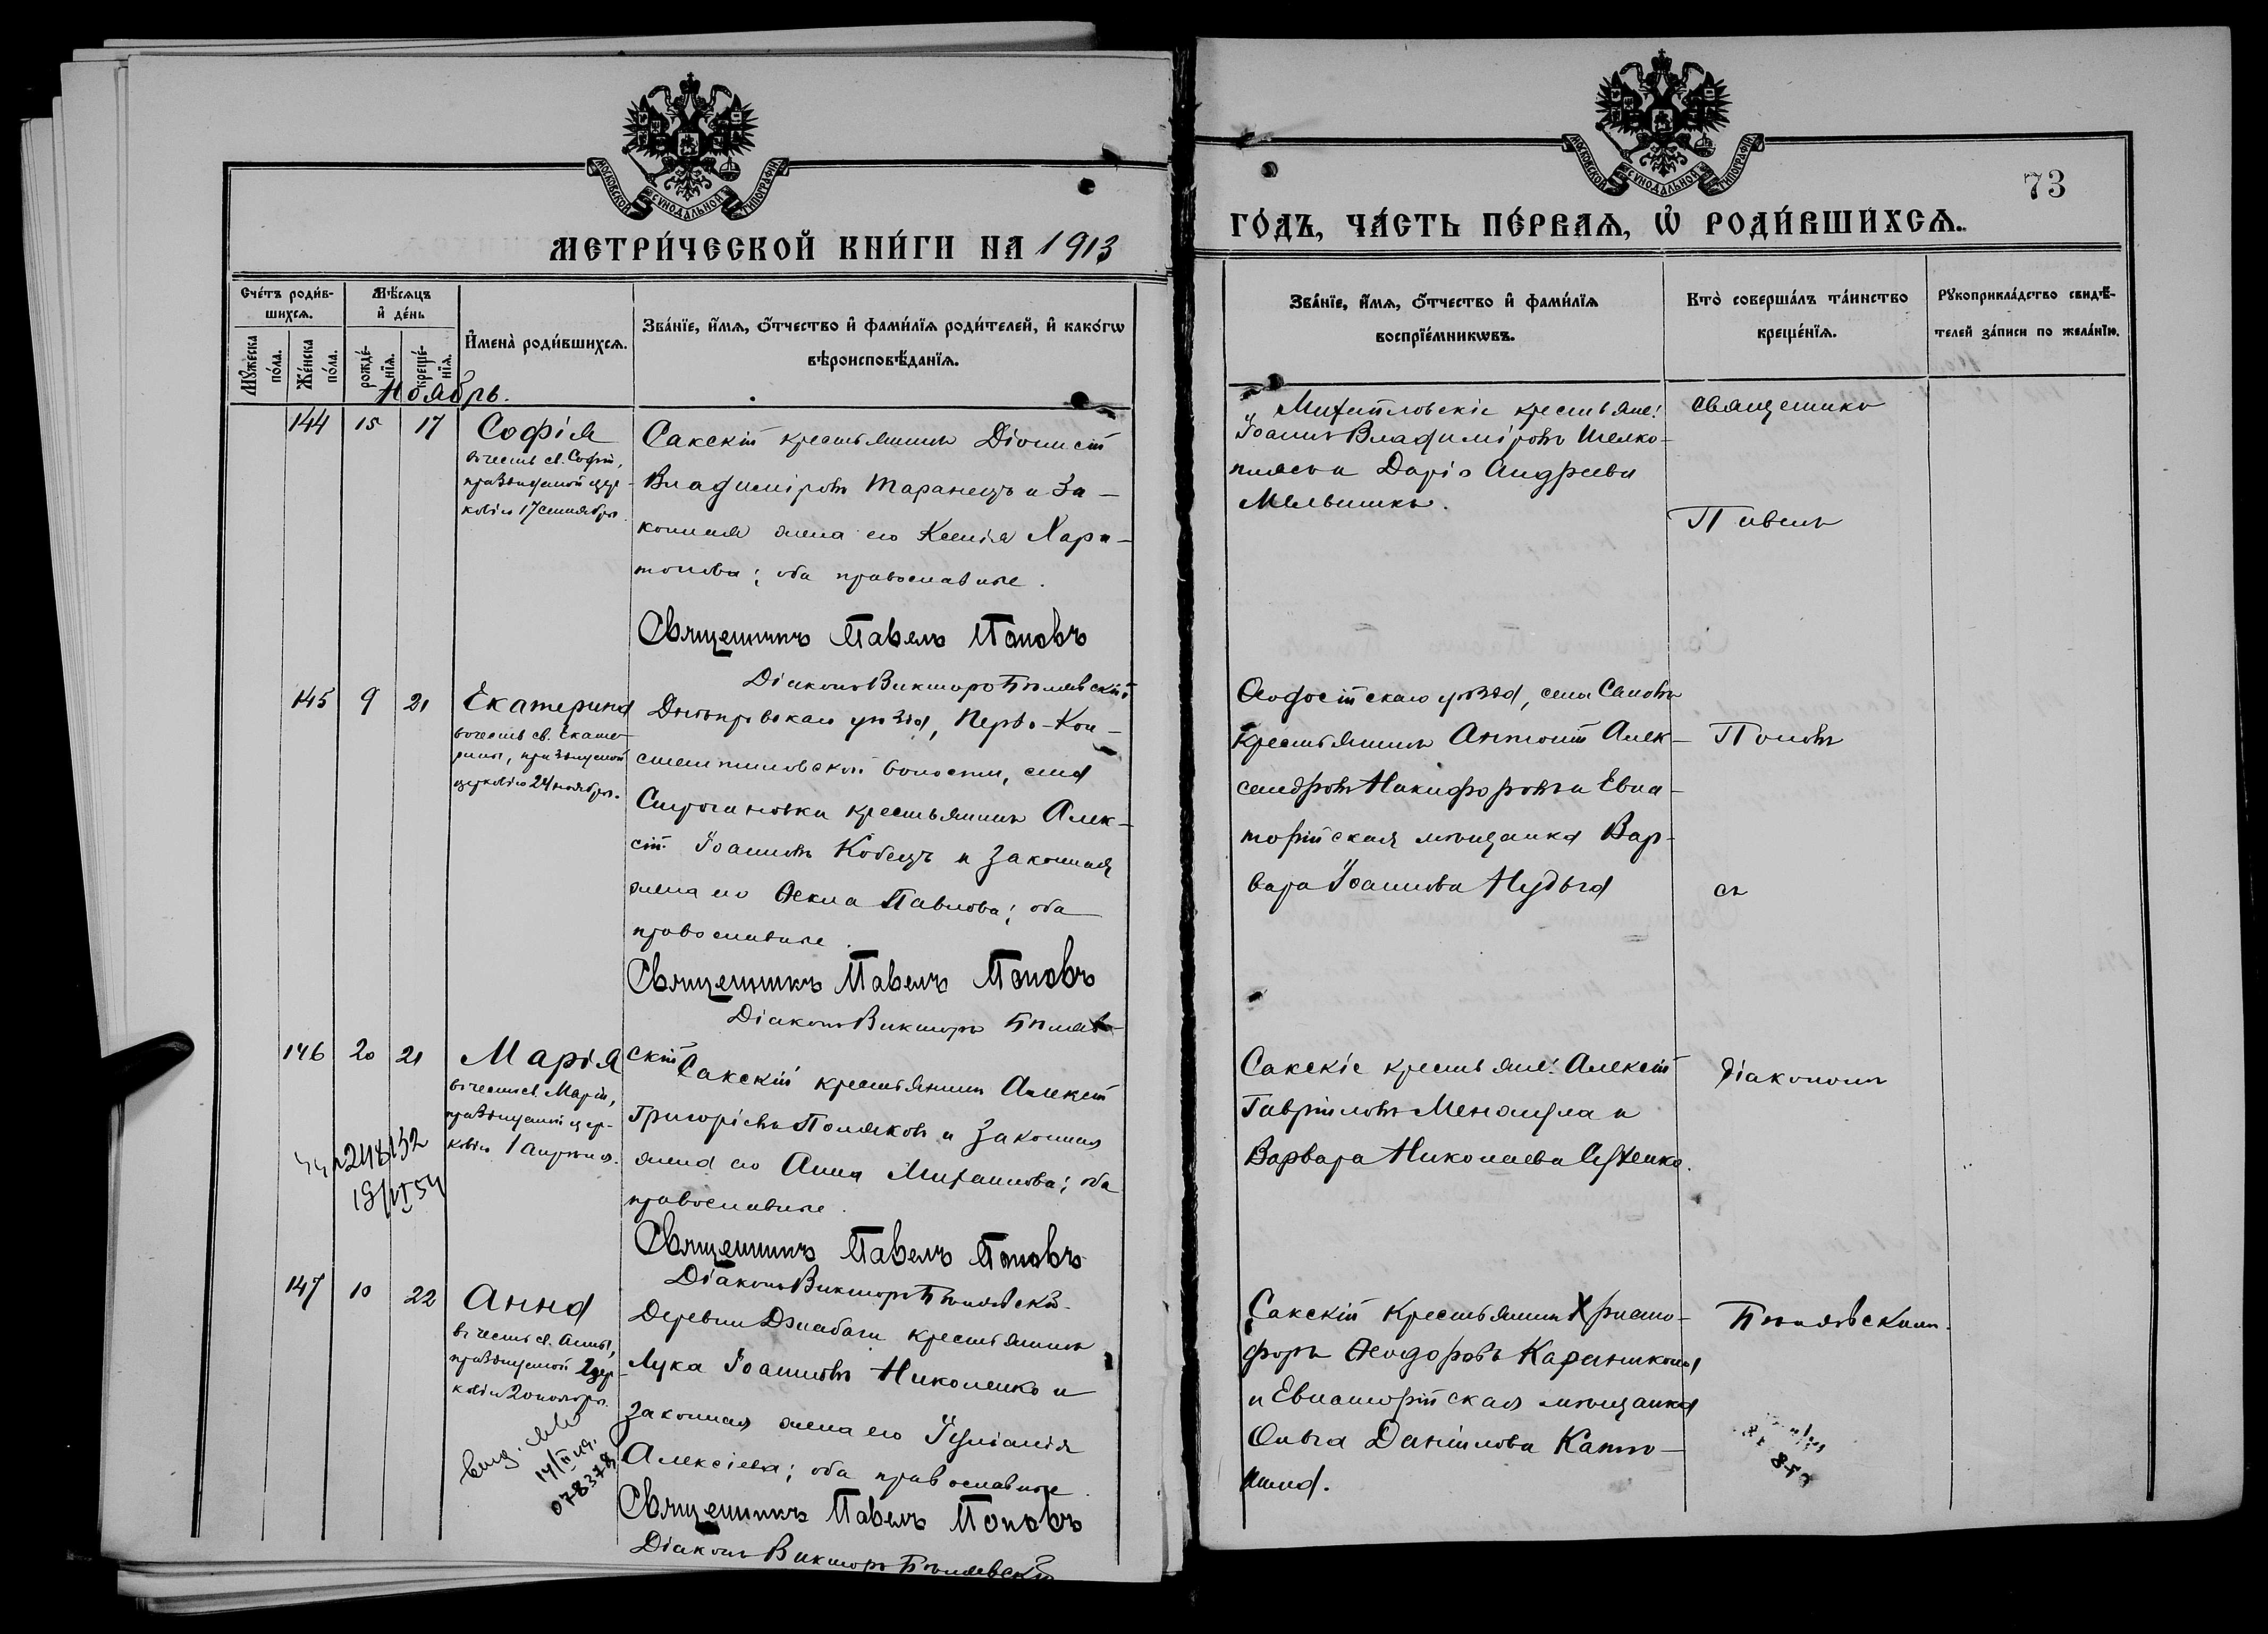 МОСКОВСКОЙ СУНОДАЛЬНОЙ ТИПОГРАФІИ
МЕТРИ́ЧЕСКОЙ КНИ́ГИ НА 1913
Сче́тъ роди́в-
шихсѧ.
Мꙋ́жеска
по́ла.
Же́нска
по́ла.
Мѣ́сѧцъ
и҆ де́нь
рожде́-
нїѧ.
креще́-
нїѧ.
И҆мена̀ роди́вшихсѧ.
Зва́нїе, и҆́мѧ, ѻ҆́тчество и҆ фами́лїѧ роди́телей, и҆ како́гѡ
вѣроисповѣ́данїѧ.
Ноябрь.
144 15 17 Софія
въ честь св. Софіи,
празднуемой цер-
ковію 17 сентября.
Сакскій крестьянинъ Діонисій
Владиміровъ Таранецъ и за-
конная жена его Ксенія Хари-
тонова; оба православные.
Священникъ Павелъ Поповъ
Діаконъ Викторъ Бѣлявскій
145 9 21 Екатерина
въ честь св. Екате-
рины, празднуемой
церковію 24 ноября.
Днѣпровскаго уѣзда, Перво-Кон-
стантиновской волости, села
Строгановки крестьянинъ Алек-
сій Іоанновъ Кобецъ и законная
жена его Ѳекла Павлова; оба
православные.
Священникъ Павелъ Поповъ
Діаконъ Викторъ Бѣляв-
скій
146 20 21 Марія
въ честь св. Маріи,
празднуемой цер-
ковію 1 апрѣля.
248132
Сакскій крестьянинъ Алексій
Григорьевъ Поляковъ и законная
жена его Анна Михаилова; оба
православные.
Священникъ Павелъ Поповъ
Діаконъ Викторъ Бѣлявскій.
147 10 22 Анна
въ честь св. Анны,
празднуемой цер-
ковію 20 ноября.
078378
Деревни Джабачи крестьянинъ
Лука Іоанновъ Николенко и
законная жена его Іуліанія
Алексіева; оба православные.
Священникъ Павелъ Поповъ
Діаконъ Викторъ Бѣлявскій
МОСКОВСКОЙ СУНОДАЛЬНОЙ ТИПОГРАФІИ
73
ГО́ДЪ, ЧА́СТЬ ПЕ́РВАѦ, Ѡ҆ РОДИ́ВШИХСѦ.
Зва́нїе, и҆́мѧ, ѻ҆́тчество и҆ фами́лїѧ
воспрїе́мникѡвъ.
Кто̀ соверша́лъ та́инство
креще́нїѧ.
Рꙋкоприкла́дство свидѣ́-
телей за́писи по жела́нїю.
Михайловскіе крестьяне:
Іоаннъ Владиміровъ Шелко-
плясъ и Дарія Андреева
Мельникъ.
Священникъ
Павелъ
Ѳеодосійскаго уѣзда, села
крестьянинъ Антоній Алек-
сандровъ Никифоровъ и Евпа-
торійская мѣщанка Вар-
вара Іоаннова Нудьга
Поповъ
съ
Сакскіе крестьяне: Алексій
Гавріиловъ и
Варвара Николаева
діакономъ
Сакскій крестьянинъ Христо-
форъ Ѳеодоровъ
и Евпаторійская мѣщанка
Ольга Даніилова
Бѣлявскимъ.